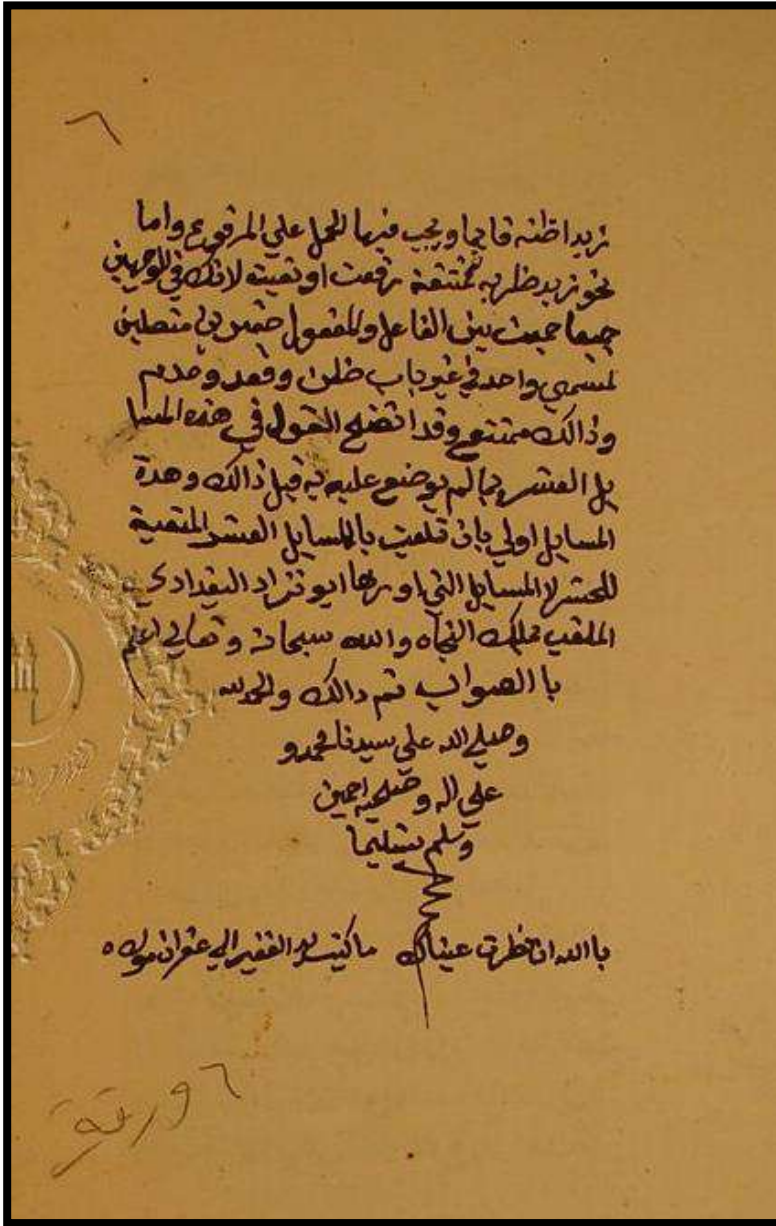 ٦
زيد اظنه قايما ويجب فيها الحمل علي المرفوع واما
نحو زيد ظربه فممتنعة رفعت او نصبته لانك في الوجهين
جميعا جمعت بين الفاعل والمفعول ضميرين متصلين
لمسمي واحد في غير باب ظن وفقد وعدم
وذالك ممتنع وقد اتضح القول في هذه المسا
يل العشر بما لم يوضع عليه قبل ذالك وهدة
المسايل اولي بان تلقب بالمسايل العشر المتعبة
للحشر لا المسايل التي اوردها ابو نزار البغدادي
الملقب بملك النحاه والله سبحانه وتعالي اعلم
با الصواب تم دالك والحمد لله
وصلي الله علي سيدنا محمد و
علي اله وصحبه اجمعين
وسلم تسليما
با الله ان نظرت عيناك ما كتبت يد الفقير الي غفران مولاه
٦ ورقة